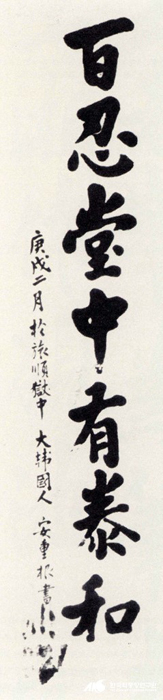 百忍堂中有泰和
庚戌二月 於旅順獄中 大韓國人 安重根書